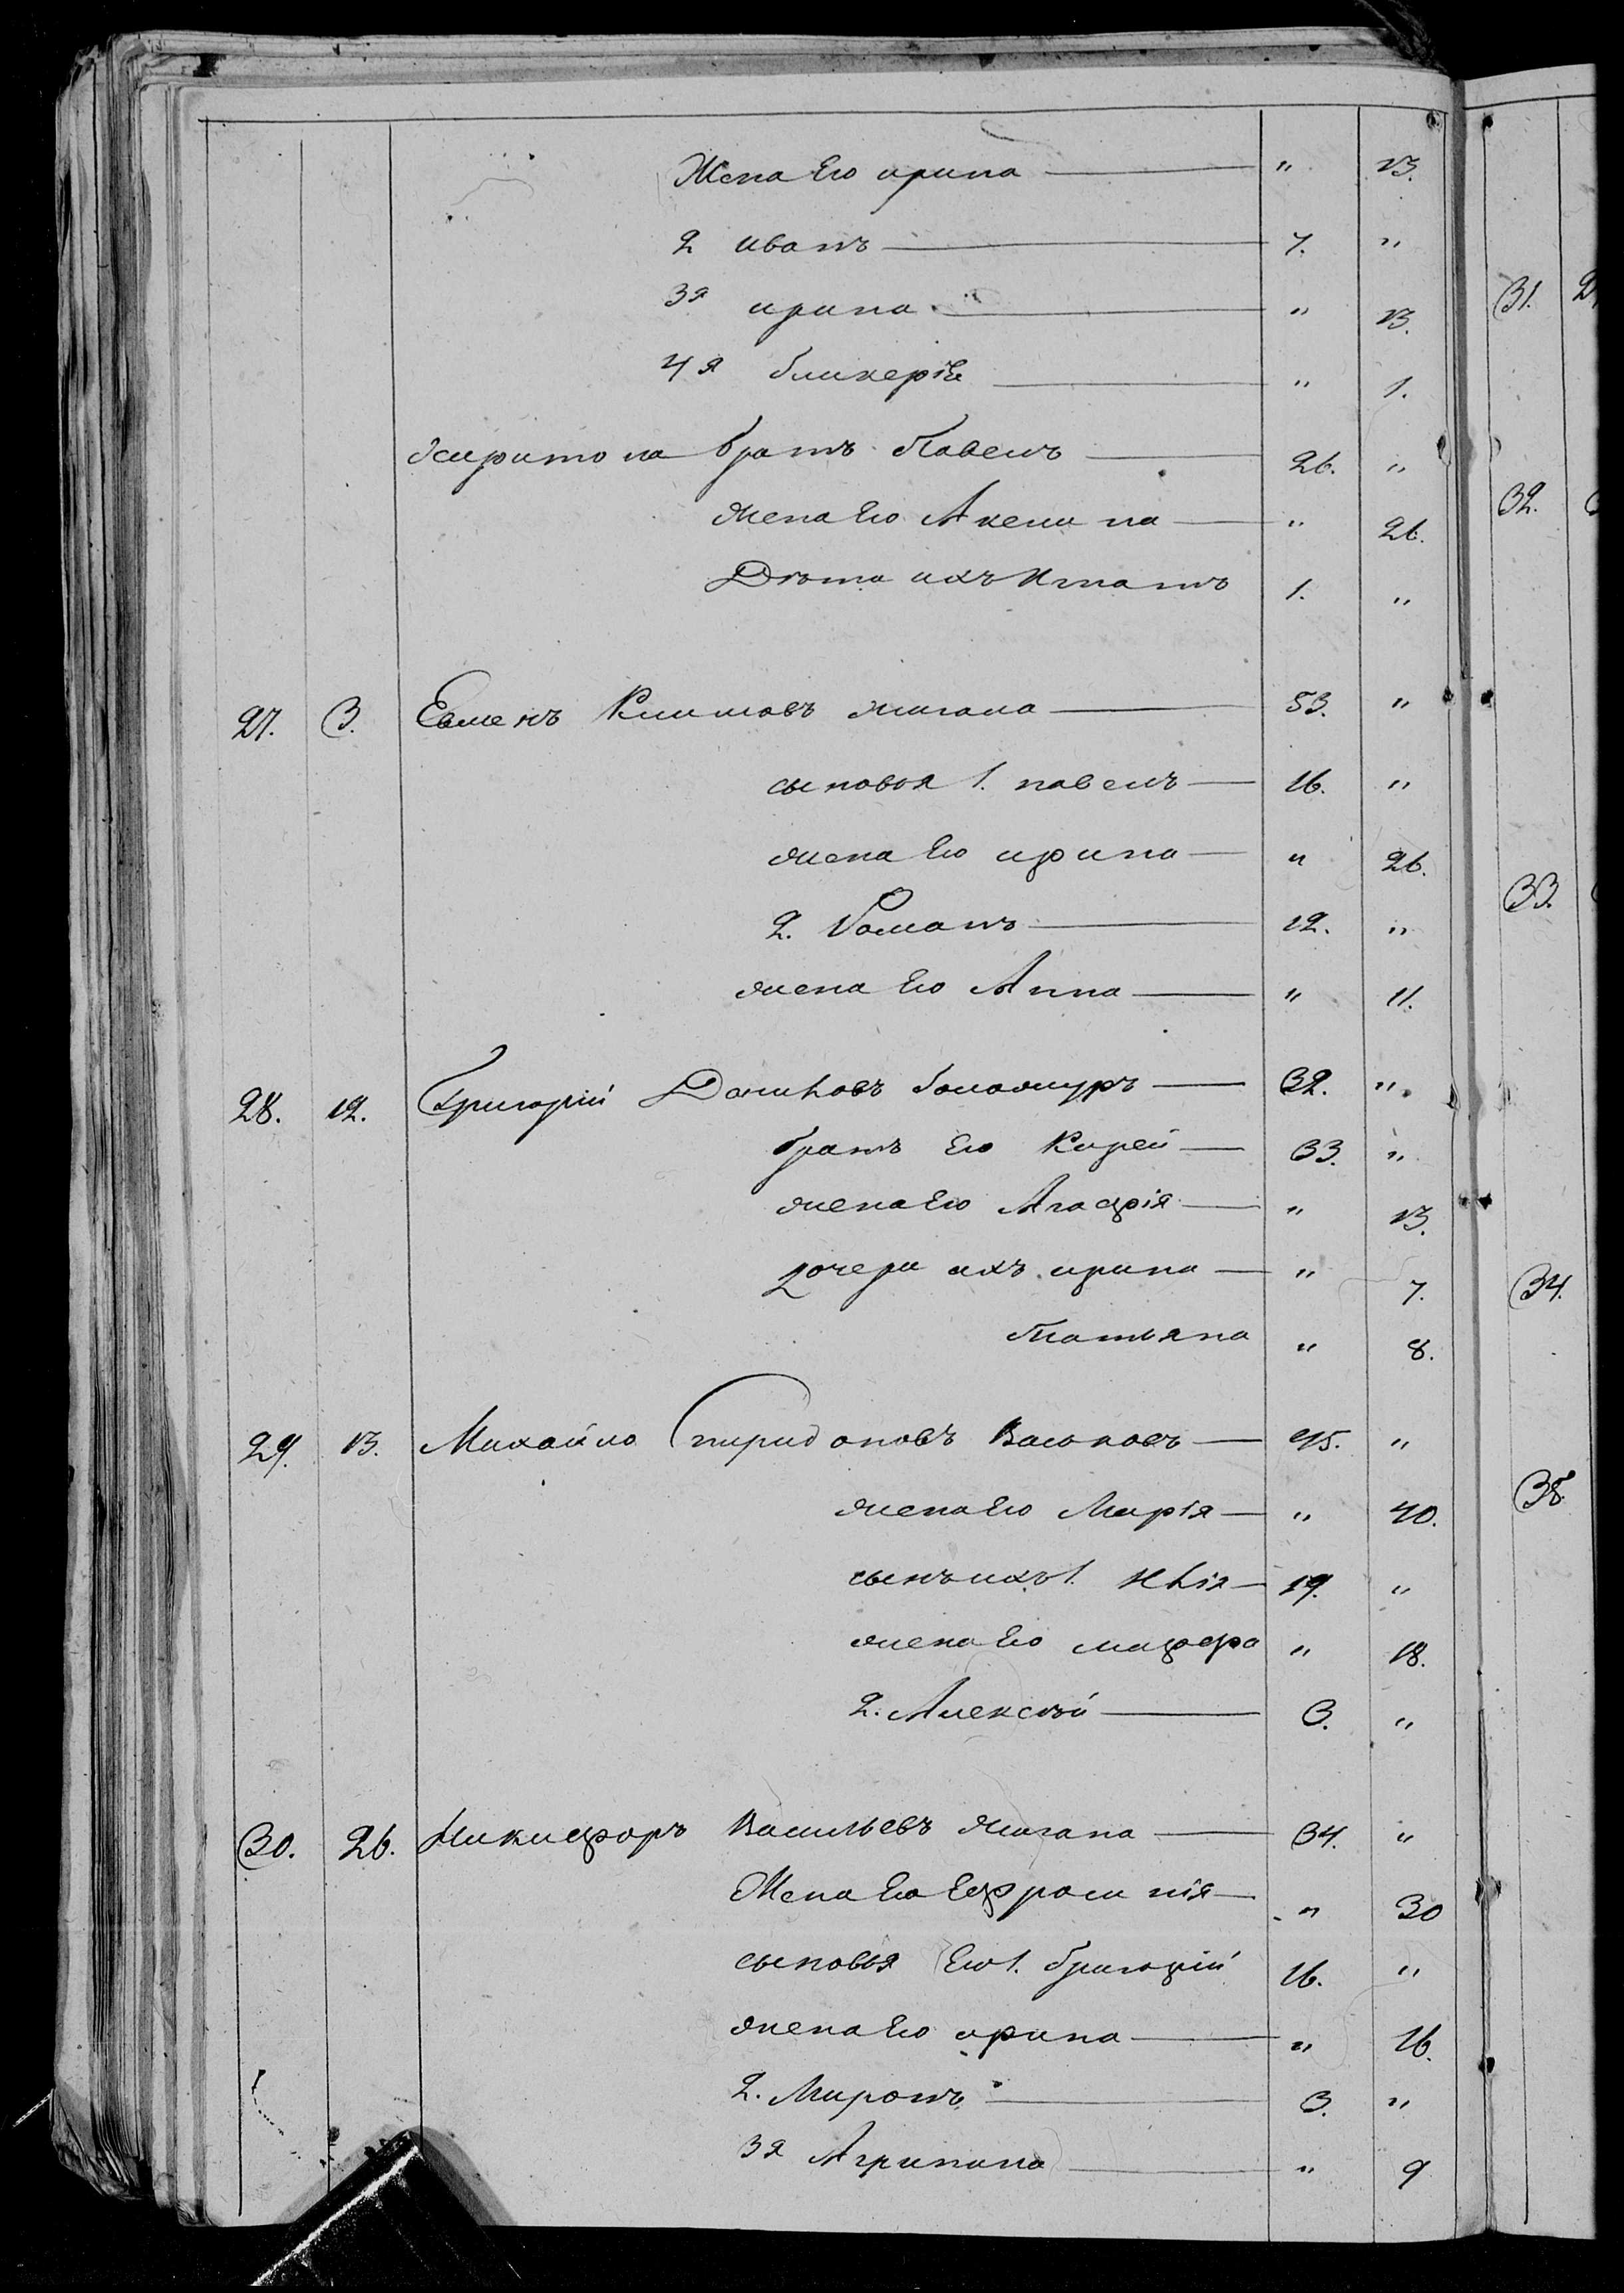 Жена Его ирина — " 23.
2 иванъ — 7. "
3я ирина — " 13.
4я Гликерія — " 1.
Харитона братъ Павелъ — 26. "
жена Его Аксина — " 26.
Дѣти ихъ Игнатъ 1. "
27. 3. Евменъ Климовъ жигана — 53. "
сыновья 1. павелъ — 26. "
жена Его ирина — " 26.
2. Романъ — 12. "
жена Его Анна — " 11.
28. 12. Григорій Даниловъ — 32. "
братъ Его Кирей — 33. "
жена Его Агафія — " 23.
дочери ихъ ирина — " 7.
Татьяна " 8.
29. 13. Михайло Спиридоновъ Васковъ — 45. "
жена Его Марія — " 40.
сынъ ихъ 1. Илія — 19. "
жена Его " 18.
2. Алексѣй — 3. "
30. 26. Никифоръ Васильевъ жигана — 34. "
Жена Его Ефросинія — " 30
сыновья Его 1. Григорій 16. "
жена Его ирина — " 16.
2. Миронъ — 3. "
3я Агрипина — " 9
31.
32.
33.
34.
35.